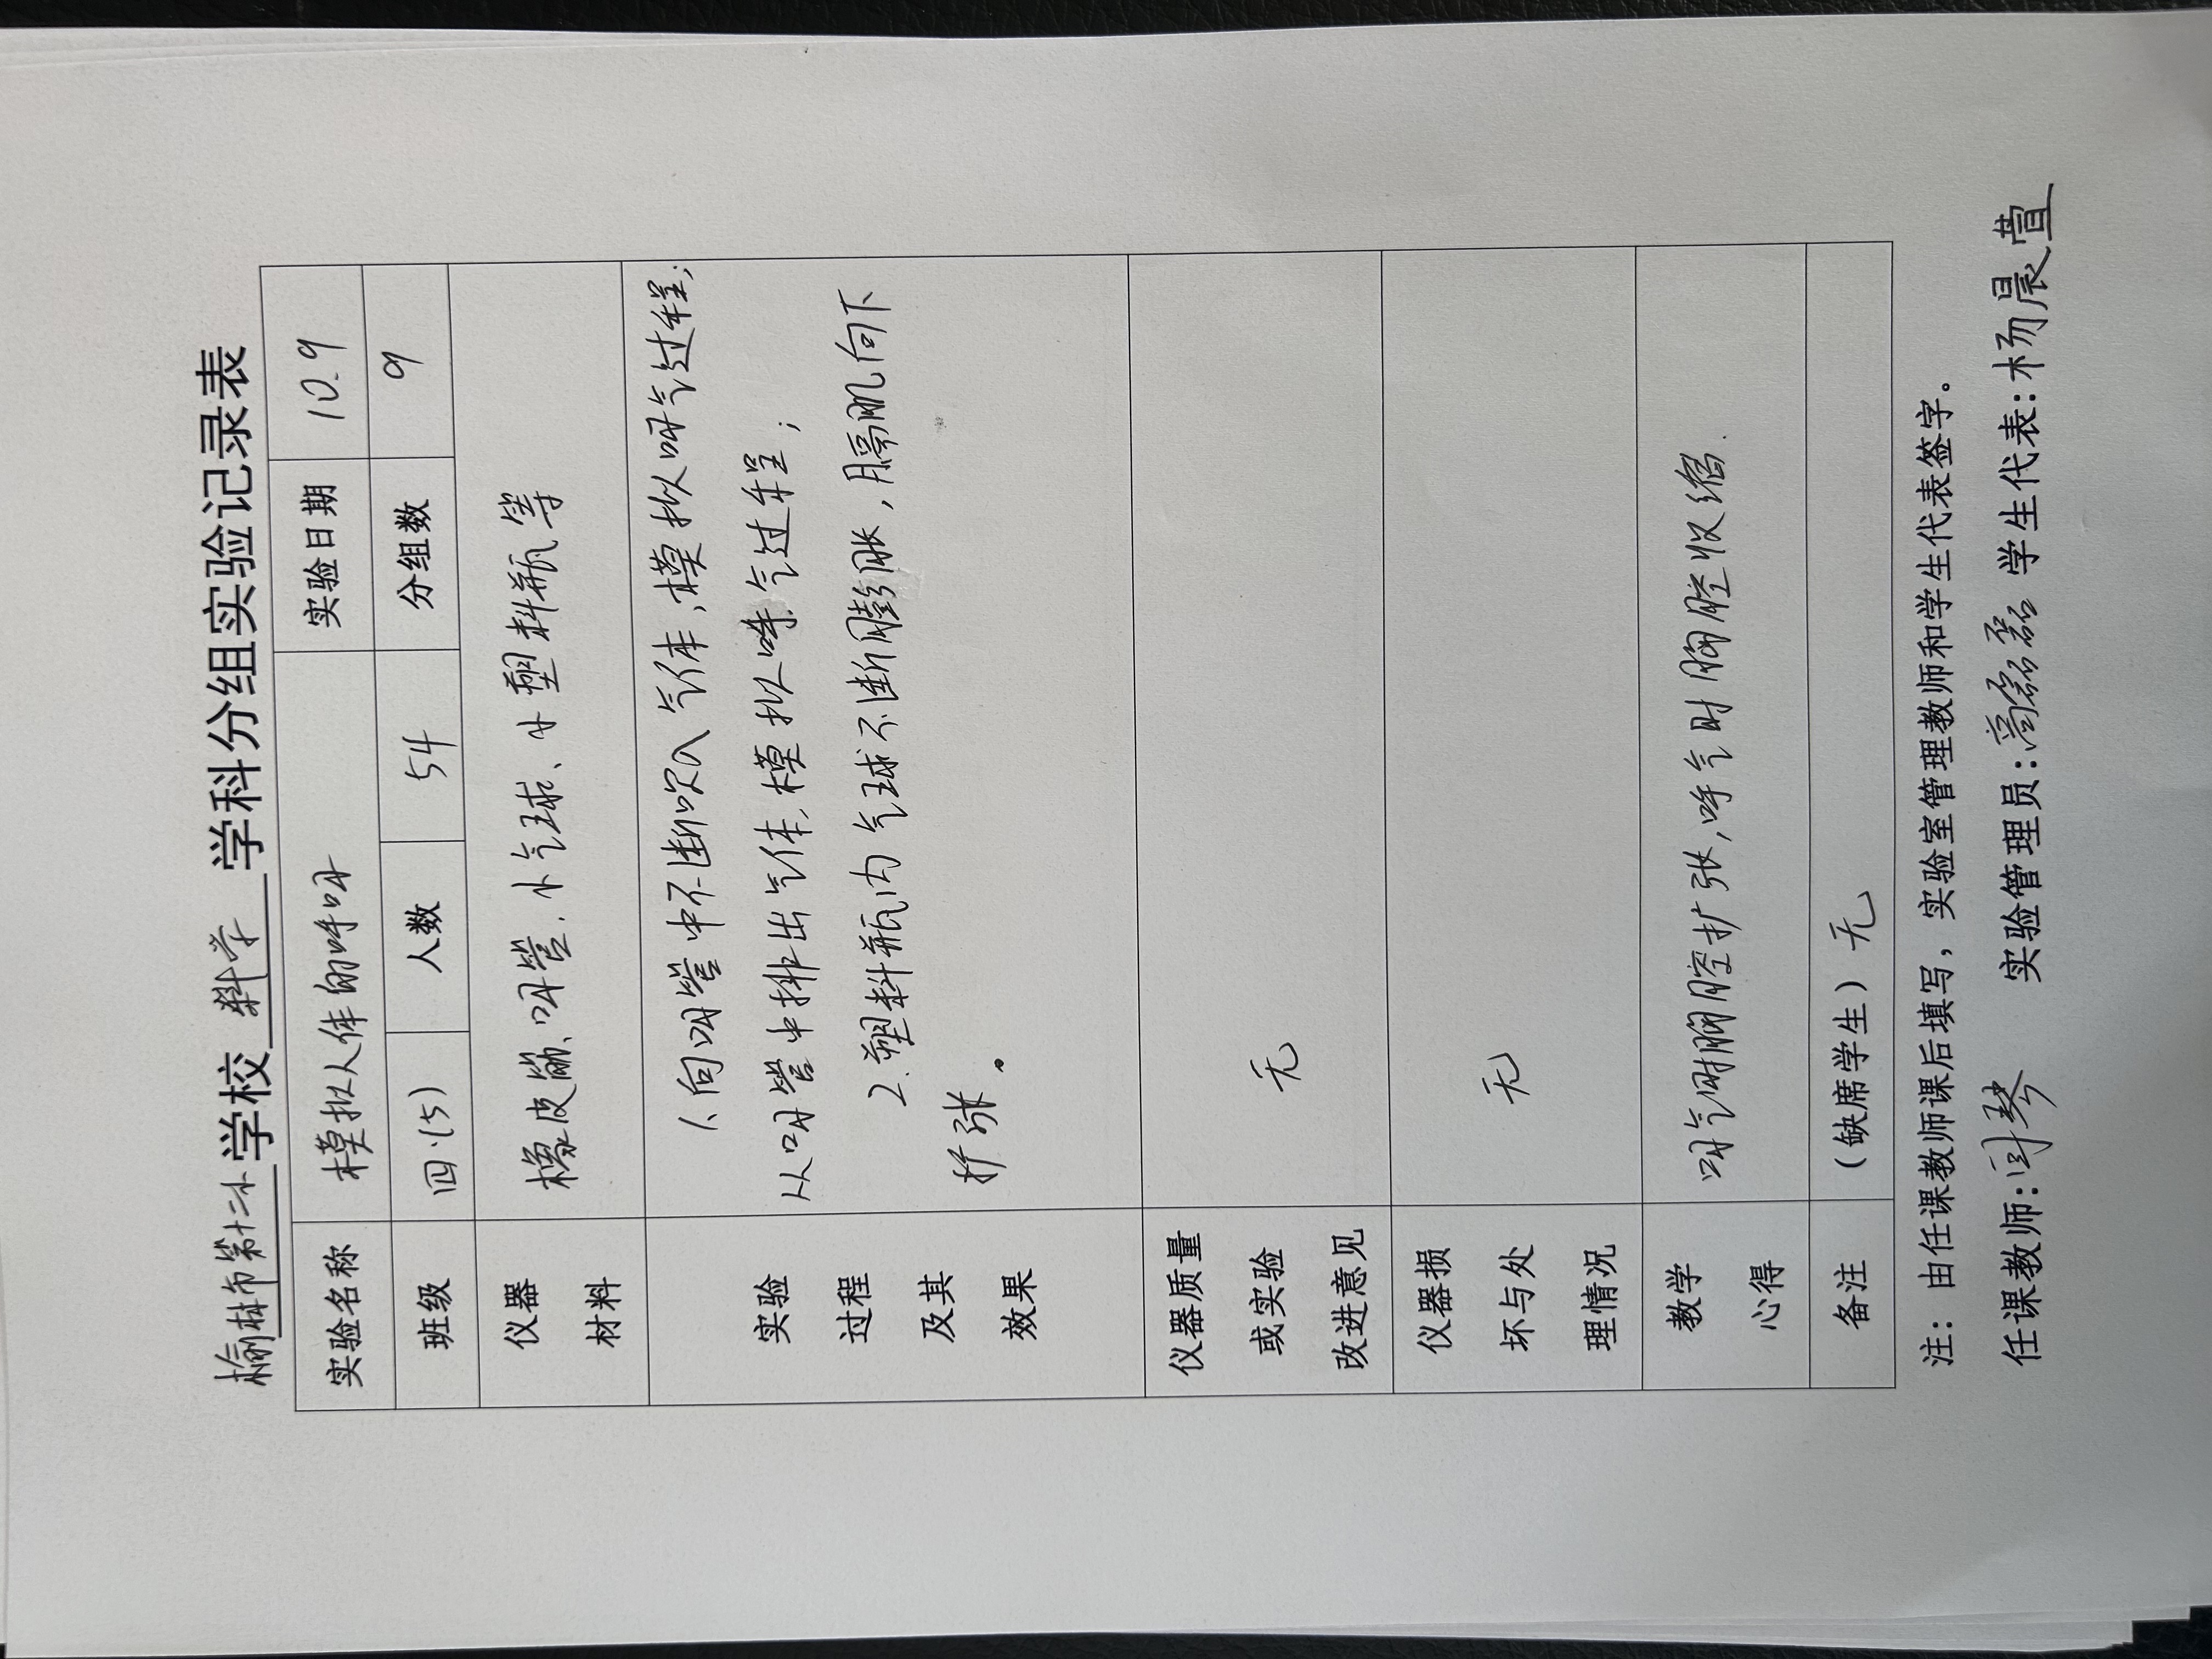 榆林市第十二小学校 科学 学科分组实验记录表
实验名称 模拟人体的呼吸 实验日期 10.9
班级 四.(5) 人数 54 分组数 9
仪器 材料 橡皮筋、吸管、小气球、小塑料瓶等
实验 过程 及其 效果
1、向吸管中不断吹入气体，模拟吸气过程；
从吸管中排出气体，模拟呼气过程；
2、塑料瓶内气球不断膨胀，膈肌向下
扩张。
仪器质量 或实验 改进意见 无
仪器损 坏与处 理情况 无
教学 心得 吸气时胸腔扩张，呼气时胸腔收缩.
备注 （缺席学生）无
注：由任课教师课后填写，实验室管理教师和学生代表签字.
任课教师：闫琴 实验管理员：高磊磊 学生代表：杨晨萱